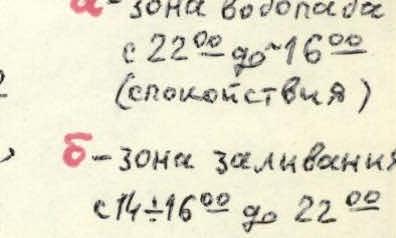 а - зона водопада
с 22⁰⁰ до ~16⁰⁰
(спокойствия)
б - зона заливания
с 14÷16⁰⁰ до 22⁰⁰